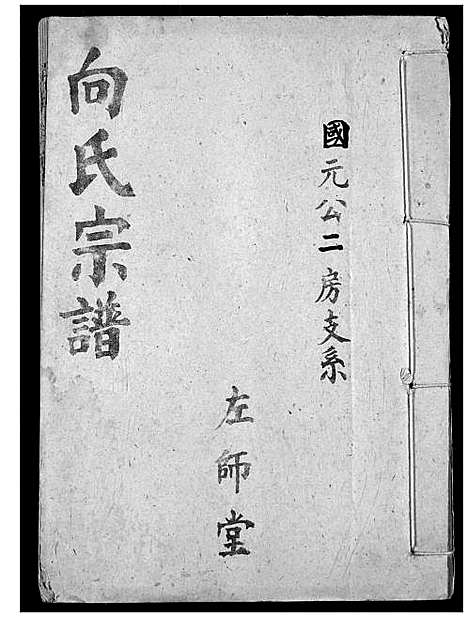 國元公二房支系
左師堂
向氏宗譜